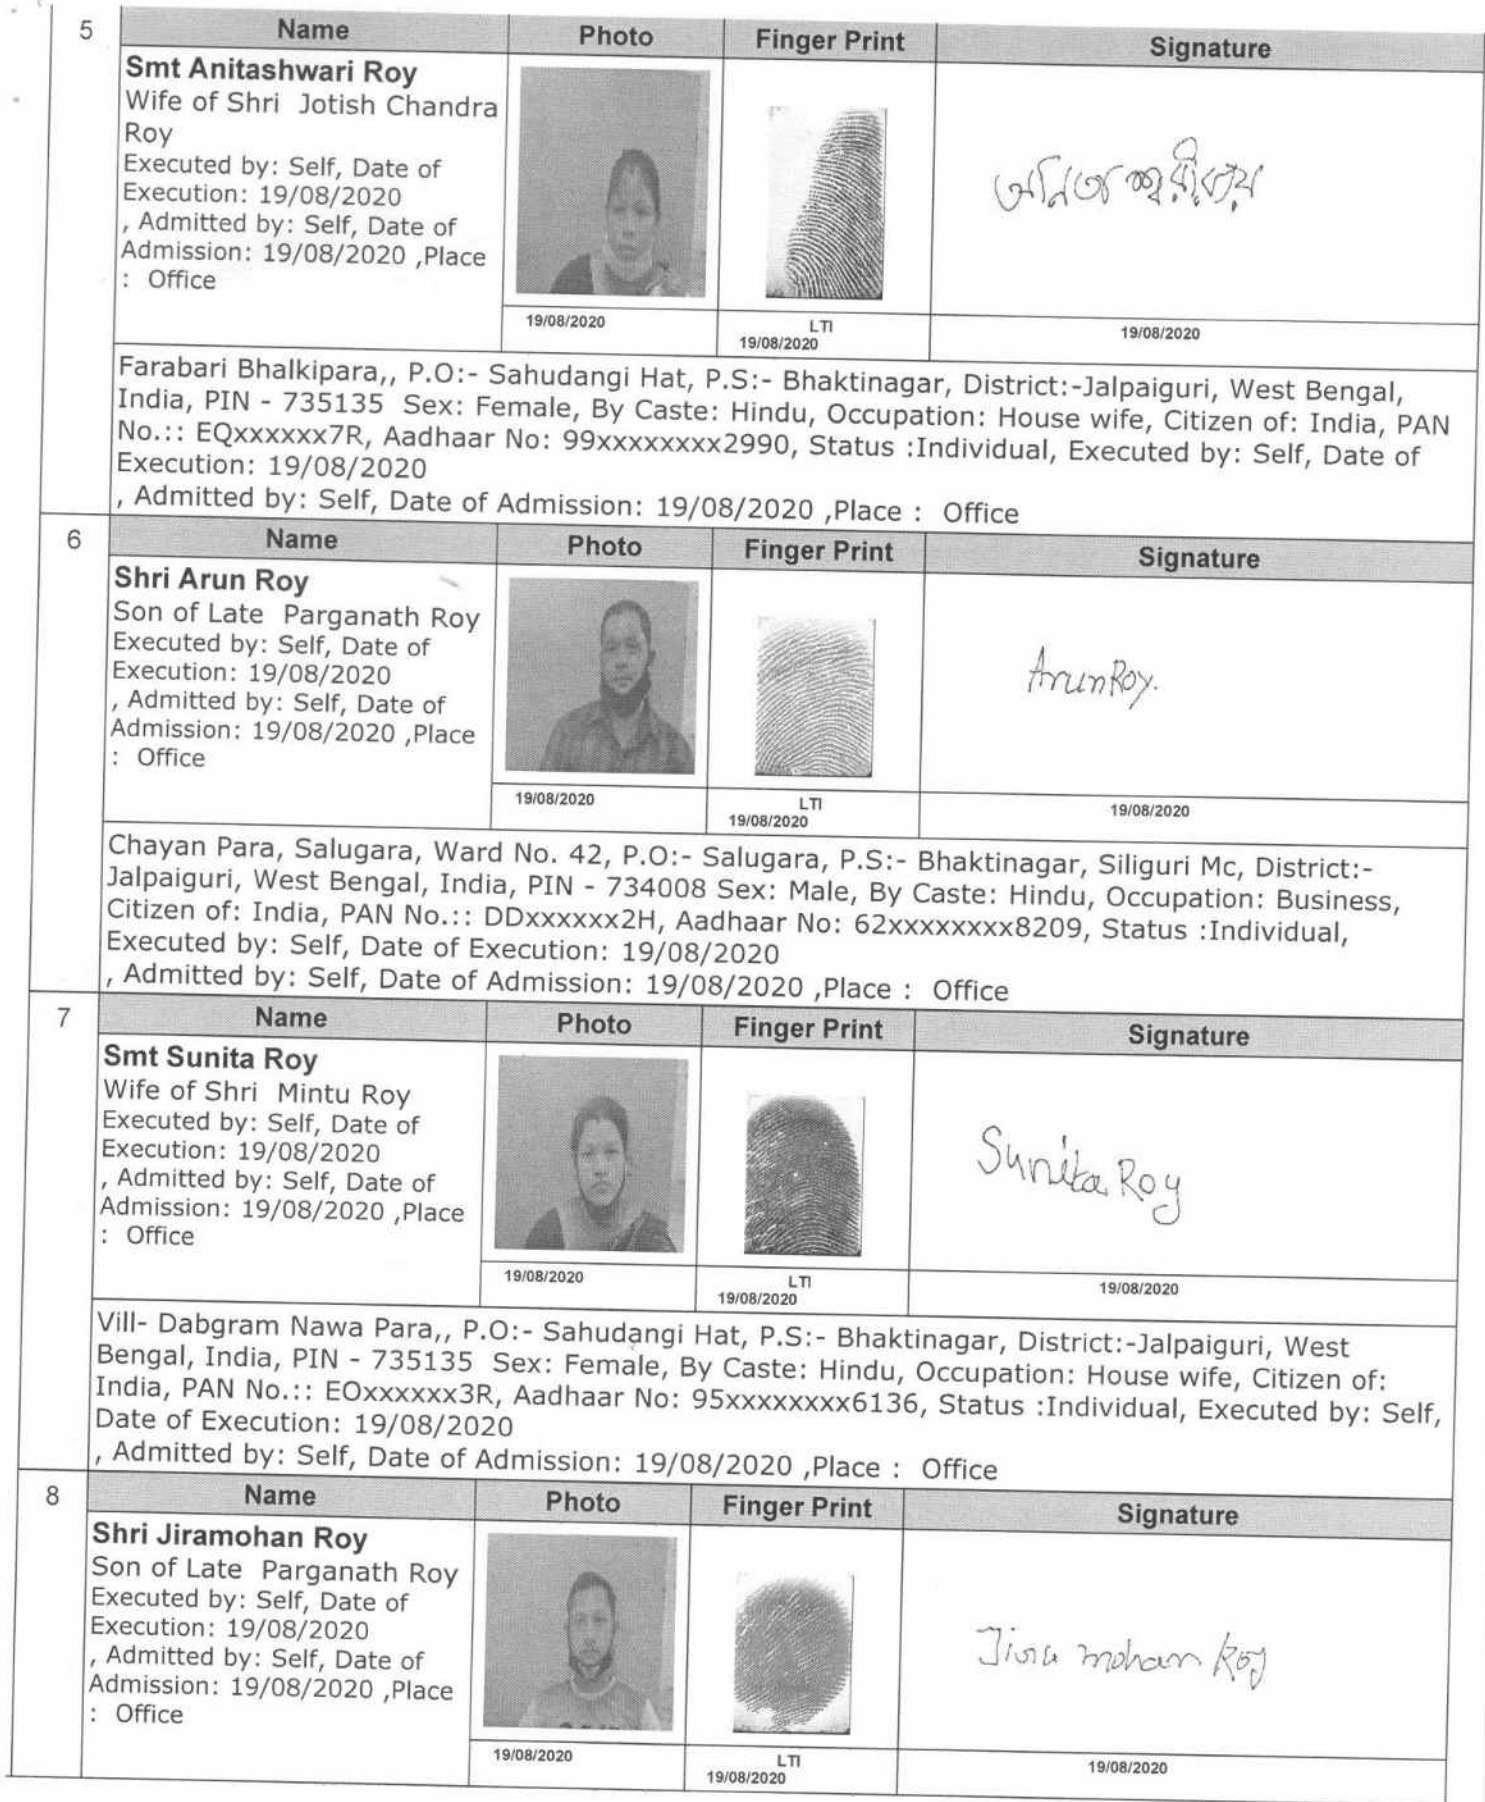 5
Name Photo Finger Print Signature
Smt Anitashwari Roy
Wife of Shri Jotish Chandra
Roy
Executed by: Self, Date of
Execution: 19/08/2020
, Admitted by: Self, Date of
Admission: 19/08/2020 ,Place
: Office
অনিতা শ্বরী রায়
19/08/2020 LTI 19/08/2020
19/08/2020
Farabari Bhalkipara,, P.O:- Sahudangi Hat, P.S:- Bhaktinagar, District:-Jalpaiguri, West Bengal,
India, PIN - 735135 Sex: Female, By Caste: Hindu, Occupation: House wife, Citizen of: India, PAN
No.:: EQxxxxxx7R, Aadhaar No: 99xxxxxxxx2990, Status :Individual, Executed by: Self, Date of
Execution: 19/08/2020
, Admitted by: Self, Date of Admission: 19/08/2020 ,Place : Office
6
Name Photo Finger Print Signature
Shri Arun Roy
Son of Late Parganath Roy
Executed by: Self, Date of
Execution: 19/08/2020
, Admitted by: Self, Date of
Admission: 19/08/2020 ,Place
: Office
Arun Roy.
19/08/2020 LTI 19/08/2020
19/08/2020
Chayan Para, Salugara, Ward No. 42, P.O:- Salugara, P.S:- Bhaktinagar, Siliguri Mc, District:-
Jalpaiguri, West Bengal, India, PIN - 734008 Sex: Male, By Caste: Hindu, Occupation: Business,
Citizen of: India, PAN No.:: DDxxxxxx2H, Aadhaar No: 62xxxxxxxx8209, Status :Individual,
Executed by: Self, Date of Execution: 19/08/2020
, Admitted by: Self, Date of Admission: 19/08/2020 ,Place : Office
7
Name Photo Finger Print Signature
Smt Sunita Roy
Wife of Shri Mintu Roy
Executed by: Self, Date of
Execution: 19/08/2020
, Admitted by: Self, Date of
Admission: 19/08/2020 ,Place
: Office
Sunita Roy
19/08/2020 LTI 19/08/2020
19/08/2020
Vill- Dabgram Nawa Para,, P.O:- Sahudangi Hat, P.S:- Bhaktinagar, District:-Jalpaiguri, West
Bengal, India, PIN - 735135 Sex: Female, By Caste: Hindu, Occupation: House wife, Citizen of:
India, PAN No.:: EOxxxxxx3R, Aadhaar No: 95xxxxxxxx6136, Status :Individual, Executed by: Self,
Date of Execution: 19/08/2020
, Admitted by: Self, Date of Admission: 19/08/2020 ,Place : Office
8
Name Photo Finger Print Signature
Shri Jiramohan Roy
Son of Late Parganath Roy
Executed by: Self, Date of
Execution: 19/08/2020
, Admitted by: Self, Date of
Admission: 19/08/2020 ,Place
: Office
Jira mohan Roy
19/08/2020 LTI 19/08/2020
19/08/2020